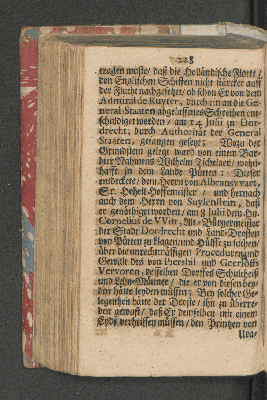 228
tragen muste / daß die Holländische Flotte /
den Englischen Schiffen nicht stärcker auff
der Flucht nachgesetzet / ob schon Er von dem
Admiral de Ruyter, durch ein an die Ge-
neral Staaten abgelassenes Schreiben ent-
schuldiget worden / am 24 Julii zu Dor-
drecht, durch Authorität der General
Staaten, gefangen gesetzt; Wozu der
Grundstein gelegt ward von einem Bar-
bier Nahmens Wilhelm Tichelaer / wohn-
hafft in dem Lande Pütten: Dieser
entdeckete / dem Herrn von Albrantswart,
Sr. Hoheit Hoffemeister / und hernach
auch dem Herrn von Suylenstein, daß
er genöthiget worden / am 8 Julii dem Hn.
Cornelius de Witt, Alt-Bürgermeister
der Stadt Dordrecht und Land-Drosten
von Pütten zu klagen / und Hülffe zu suchen /
über die unrechtmässigen Proceduren und
Gewalt des von Piershil und Geerloffs
Vervoren, desselben Dorffes Schultheiß
und Lehn-Männer / die er von diesen bey-
den hätte leyden müssen; Bey solcher Ge-
legenheit hätte der Droste / ihn zu überre-
den gewust / daß Er demselben mit einem
Eyde verheissen müssen / den Printzen von
Ura-